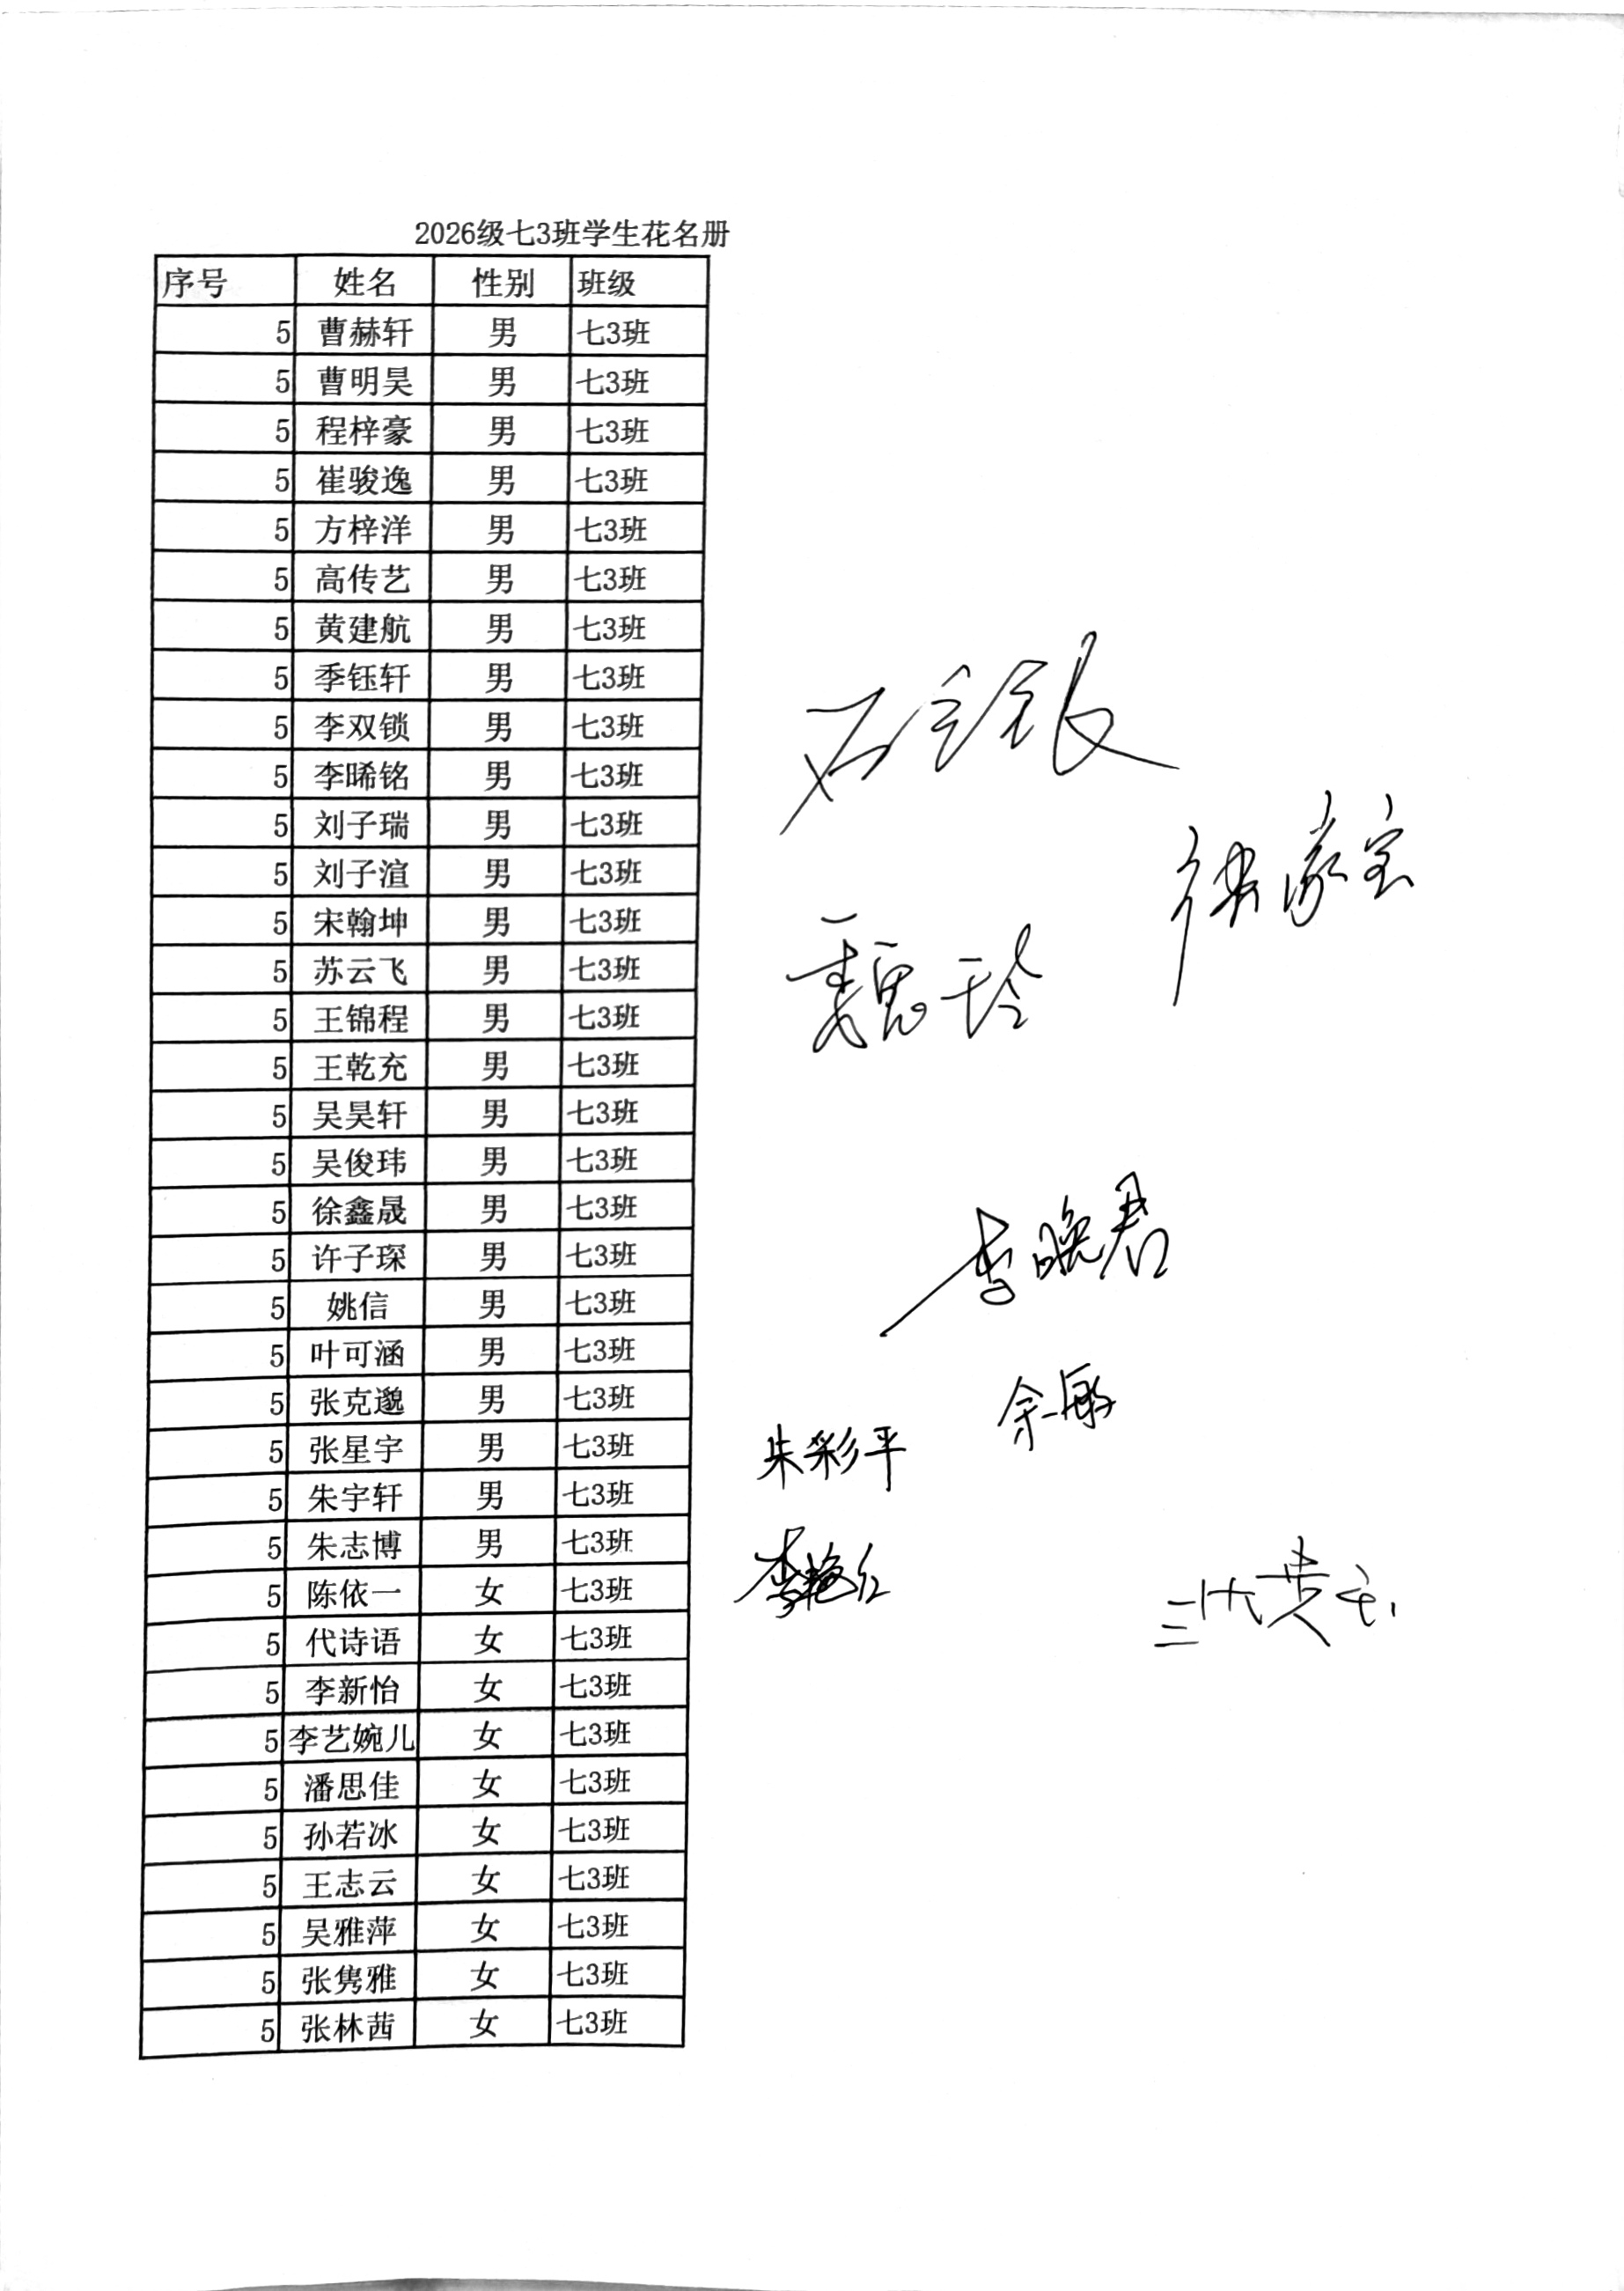 2026级七3班学生花名册
序号 姓名 性别 班级
5 曹赫轩 男 七3班
5 曹明昊 男 七3班
5 程梓豪 男 七3班
5 崔骏逸 男 七3班
5 方梓洋 男 七3班
5 高传艺 男 七3班
5 黄建航 男 七3班
5 季钰轩 男 七3班
5 李双锁 男 七3班
5 李晞铭 男 七3班
5 刘子瑞 男 七3班
5 刘子渲 男 七3班
5 宋翰坤 男 七3班
5 苏云飞 男 七3班
5 王锦程 男 七3班
5 王乾充 男 七3班
5 吴昊轩 男 七3班
5 吴俊玮 男 七3班
5 徐鑫晟 男 七3班
5 许子琛 男 七3班
5 姚信 男 七3班
5 叶可涵 男 七3班
5 张克邈 男 七3班
5 张星宇 男 七3班
5 朱宇轩 男 七3班
5 朱志博 男 七3班
5 陈依一 女 七3班
5 代诗语 女 七3班
5 李新怡 女 七3班
5 李艺婉儿 女 七3班
5 潘思佳 女 七3班
5 孙若冰 女 七3班
5 王志云 女 七3班
5 吴雅萍 女 七3班
5 张隽雅 女 七3班
5 张林茜 女 七3班
家宝
魏玲
李晚君
余敏
朱彩平
李艳红